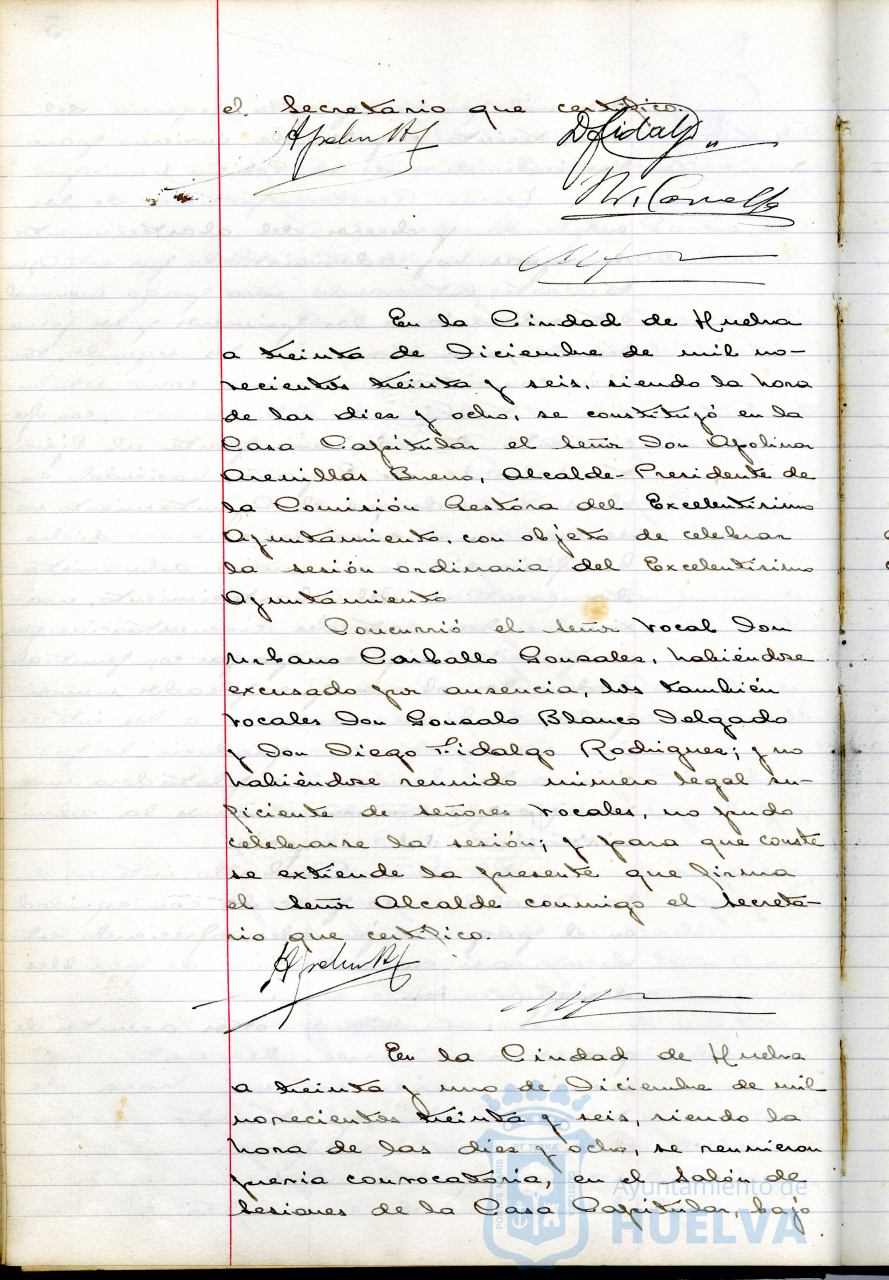 el Secretario que certifico.
D. Fidalgo
En la Ciudad de Huelva
a treinta de Diciembre de mil no-
vecientos treinta y seis, siendo la hora
de las dies y ocho, se constituyó en la
Casa Capitular el señor Don Apolinar
Arenillas Bueno, Alcalde-Presidente de
la Comisión Gestora del Excelentísimo
Ayuntamiento, con objeto de celebrar
la sesión ordinaria del Excelentísimo
Ayuntamiento
Concurrió el señor vocal Don
Urbano Carballo Gonsales, habiéndose
excusado por ausencia, los también
vocales Don Gonsalo Blanco Delgado
y Don Diego Fidalgo Rodrigues; y no
habiéndose reunido número legal su-
ficiente de señores vocales, no pudo
celebrarse la sesión; y para que conste
se extiende la presente que firma
el señor Alcalde conmigo el secreta-
rio que certifico.
En la Ciudad de Huelva
a treinta y uno de Diciembre de mil
novecientos treinta y seis, siendo la
hora de las dies y ocho, se reunieron
previa convocatoria, en el salón de
Sesiones de la Casa Capitular, bajo
Ayuntamiento de
HUELVA